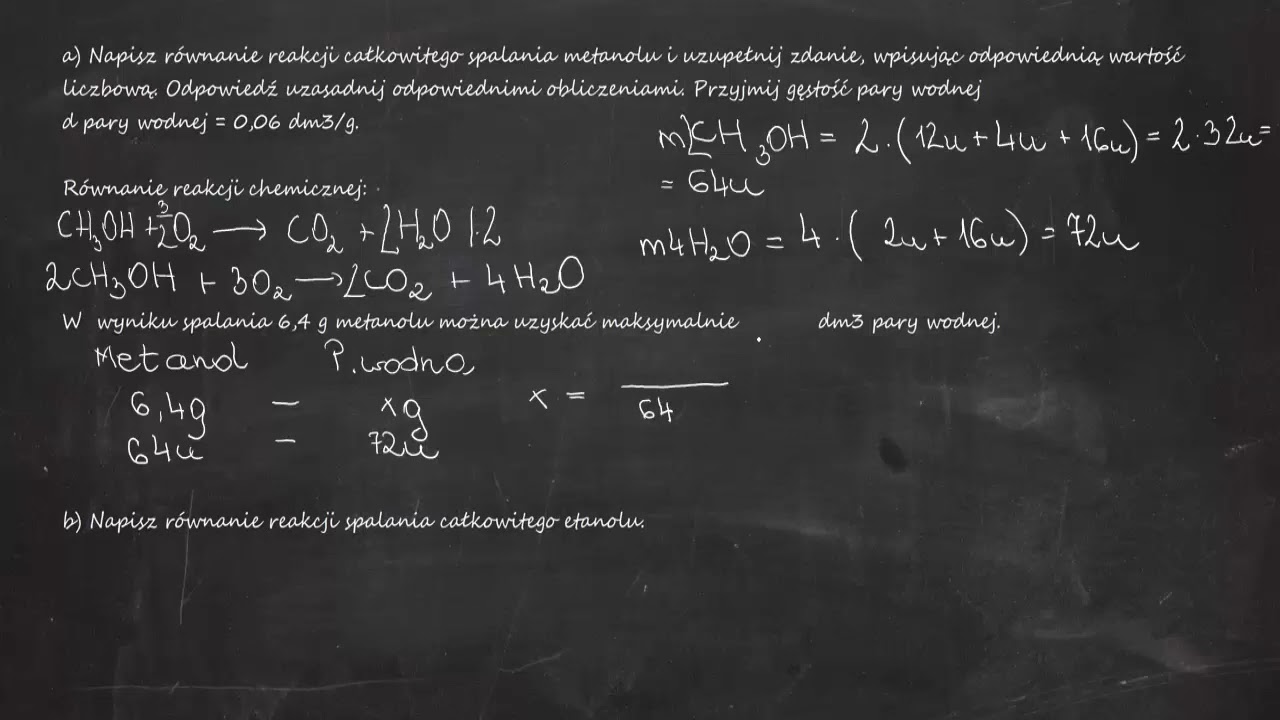 a) Napisz równanie reakcji całkowitego spalania metanolu i uzupełnij zdanie, wpisując odpowiednią wartość
liczbową. Odpowiedź uzasadnij odpowiednimi obliczeniami. Przyjmij gęstość pary wodnej
d pary wodnej = 0,06 dm3/g.
m2CH₃OH = 2·(12u + 4u + 16u) = 2·32u =
= 64u
Równanie reakcji chemicznej:
CH₃OH + 3/2O₂ → CO₂ + 2H₂O |·2
m4H₂O = 4·(2u + 16u) = 72u
2CH₃OH + 3O₂ → 2CO₂ + 4H₂O
W wyniku spalania 6,4 g metanolu można uzyskać maksymalnie dm3 pary wodnej.
Metanol P. wodna
6,4g – xg
64u – 72u
x = ―
64
b) Napisz równanie reakcji spalania całkowitego etanolu.